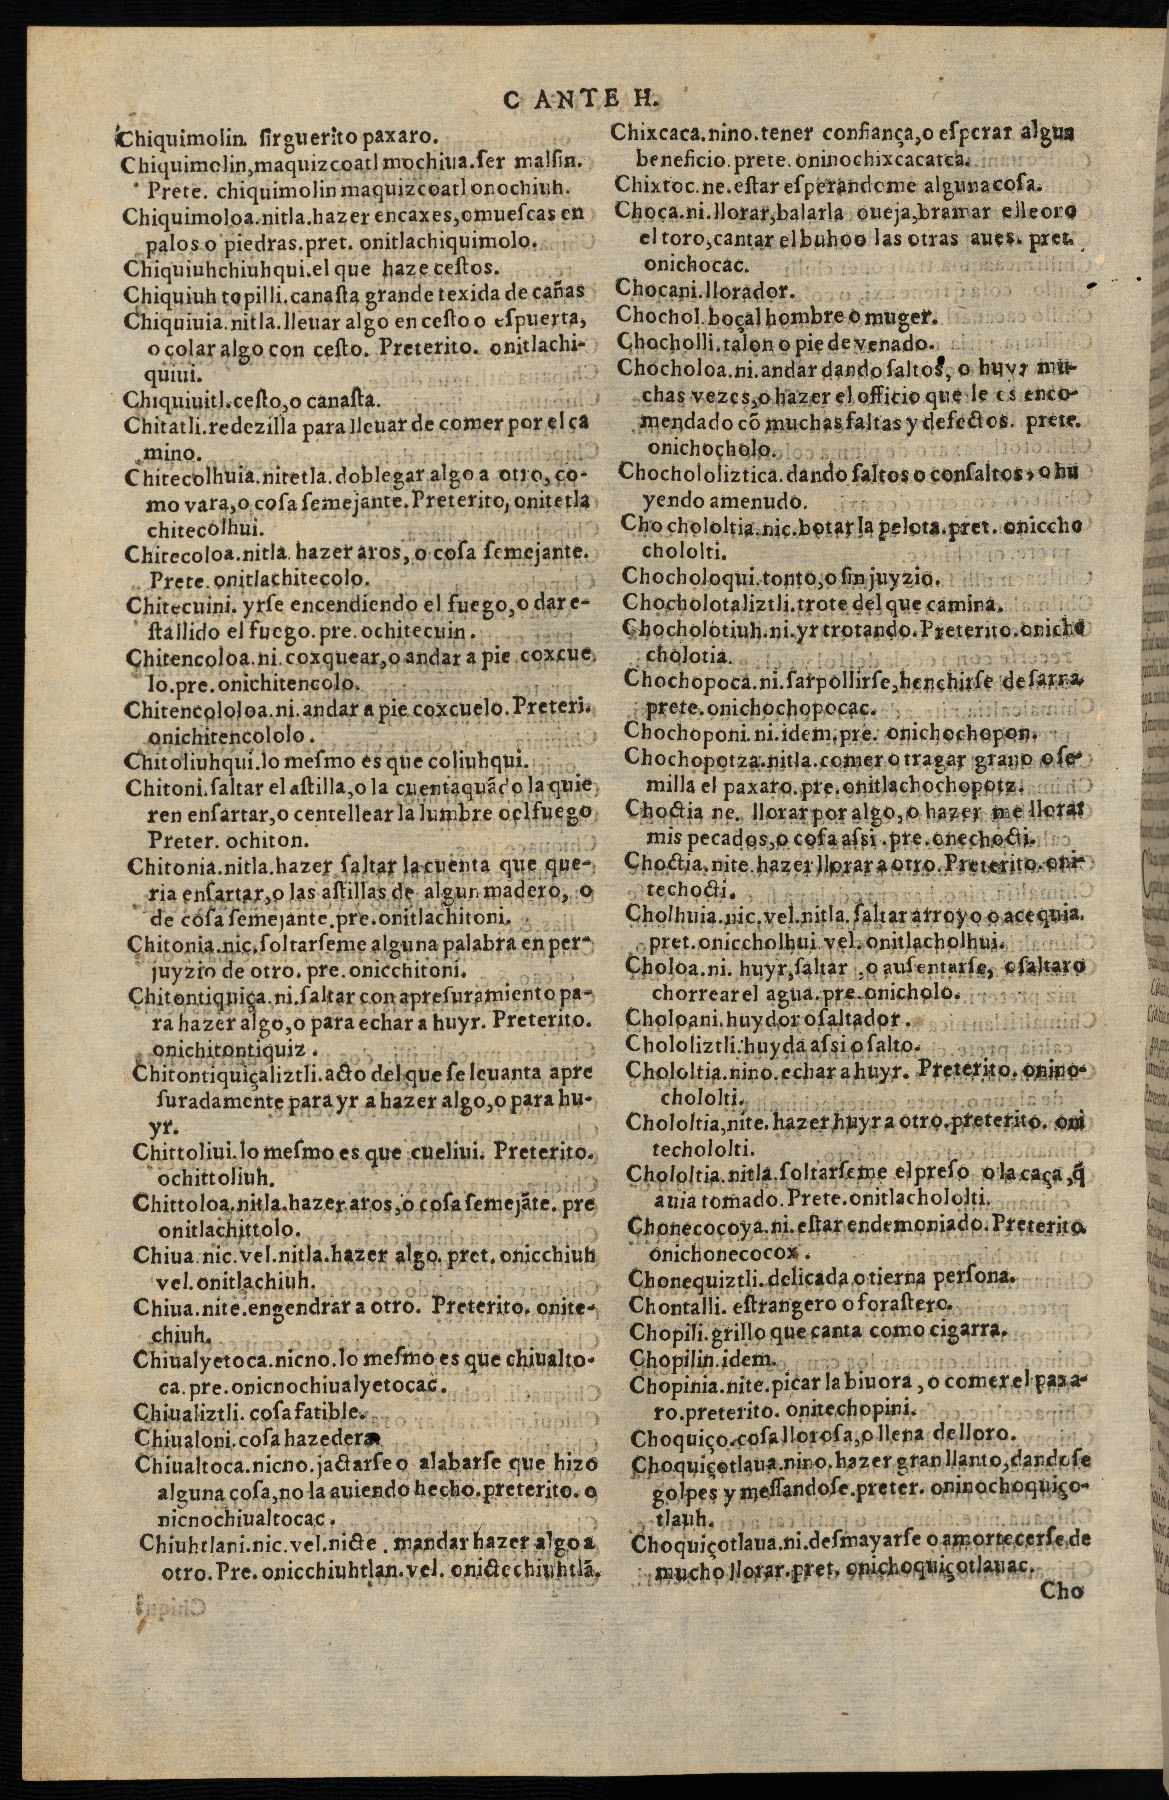 C ANTE H.
Chiquimolin. sirguerito paxaro.
Chiquimolin,maquizcoatl mochiua.ser malsin.
Prete. chiquimolin maquizcoatl onochiuh.
Chiquimoloa.nitla.hazer encaxes,o muescas en
palos o piedras.pret. onitlachiquimolo.
Chiquiuhchiuhqui.el que haze cestos.
Chiquiuh topilli.canasta grande texida de cañas
Chiquiuia.nitla.lleuar algo en cesto o espuerta,
o colar algo con cesto. Preterito. onitlachi-
quiui.
Chiquiuitl.cesto,o canasta.
Chitatli.redezilla para lleuar de comer por el ca
mino.
Chitecolhuia.nitetla.doblegar algo a otro, co-
mo vara,o cosa semejante.Preterito, onitetla
chitecolhui.
Chitecoloa.nitla. hazer aros, o cosa semejante.
Prete.onitlachitecolo.
Chitecuini. yrse encendiendo el fuego,o dar e-
stallido el fuego.pre.ochitecuin.
Chitencoloa.ni.coxquear,o andar a pie coxcue
lo.pre.onichitencolo.
Chitencololoa.ni.andar a pie coxcuelo.Preteri.
onichitencololo.
Chitoliuhqui.lo mesmo es que coliuhqui.
Chitoni.saltar el astilla,o la cuenta quãdo la quie
ren ensartar,o centellear la lumbre o el fuego
Preter. ochiton.
Chitonia.nitla.hazer saltar la cuenta que que-
ria ensartar,o las astillas de algun madero, o
de cosa semejante.pre.onitlachitoni.
Chitonia.nic.soltarseme alguna palabra en per-
juyzio de otro. pre.onicchitoni.
Chitontiquiça.ni.saltar con apresuramiento pa-
ra hazer algo,o para echar a huyr. Preterito.
onichitontiquiz.
Chitontiquiçaliztli.acto del que se leuanta apre
suradamente para yr a hazer algo,o para hu-
yr.
Chittoliui.lo mesmo es que cueliui. Preterito.
ochittoliuh.
Chittoloa.nitla.hazer aros,o cosa semejãte. pre
onitlachittolo.
Chiua.nic.vel.nitla.hazer algo. pret. onicchiuh
vel.onitlachiuh.
Chiua.nite.engendrar a otro. Preterito. onite-
chiuh.
Chiualyetoca.nicno.lo mesmo es que chiualto-
ca.pre.onicnochiualyetocac.
Chiualiztli. cosa fatible.
Chiualoni.cosa hazedera
Chiualtoca.nicno.jactarse o alabarse que hizo
alguna cosa,no la auiendo hecho.preterito. o
nicnochiualtocac.
Chiuhtlani.nic.vel.nicte. mandar hazer algo a
otro. Pre. onicchiuhtlan.vel. onictechiuhtlã.
Chixcaca.nino.tener confiança,o esperar algun
beneficio.prete.oninochixcacatca.
Chixtoc.ne.estar esperandome alguna cosa.
Choca.ni.llorar,balar la oueja,bramar el leoro
el toro,cantar el buho o las otras aues. pret.
onichocac.
Chocani.llorador.
Chochol.boçal hombre o muger.
Chocholli.talon o pie de venado.
Chocholoa.ni.andar dando saltos, o huyr mu-
chas vezes,o hazer el officio que le es enco-
mendado cõ muchas faltas y defectos. prete.
onichocholo.
Chochololiztica.dando saltos o con saltos, o hu
yendo amenudo.
Cho chololtia.nic.botar la pelota.pret. oniccho
chololti.
Chocholoqui.tonto,o sin juyzio.
Chocholotaliztli.trote del que camina.
Chocholotiuh.ni.yr trotando.Preterito.onicho
cholotia.
Chochopoca.ni.sarpollirse,henchirse de sarna.
prete.onichochopocac.
Chochoponi.ni.idem.pre. onichochopon.
Chochopotza.nitla.comer o tragar grano o se-
milla el paxaro.pre.onitlachochopotz.
Choctia ne. llorar por algo,o hazer me llorar
mis pecados,o cosa assi.pre.onechocti.
Choctia.nite.hazer llorar a otro.Preterito.oni-
techocti.
Cholhuia.nic.vel.nitla.saltar arroyo o acequia.
pret.oniccholhui vel.onitlacholhui.
Choloa.ni. huyr,saltar ,o ausentarse, o saltar o
chorrear el agua.pre.onicholo.
Choloani.huydor o saltador.
Chololiztli.huyda assi o salto.
Chololtia.nino.echar a huyr. Preterito.onino-
chololti.
Chololtia,nite.hazer huyr a otro.preterito. oni
techololti.
Chololtia.nitla.soltarseme el preso o la caça,q̃
auia tomado.Prete.onitlachololti.
Chonecocoya.ni.estar endemoniado.Preterito.
onichonecocox.
Chonequiztli.delicada o tierna persona.
Chontalli. estrangero o forastero.
Chopili.grillo que canta como cigarra.
Chopilin.idem.
Chopinia.nite.picar la biuora,o comer el paxa-
ro.preterito. onitechopini.
Choquiço.cosa llorosa,o llena de lloro.
Choquiçotlaua.nino.hazer gran llanto,dandose
golpes y messandose.preter. oninochoquiço-
tlauh.
Choquiçotlaua.ni.desmayarse o amortecerse,de
mucho llorar.pret. onichoquiçotlauac.
Cho